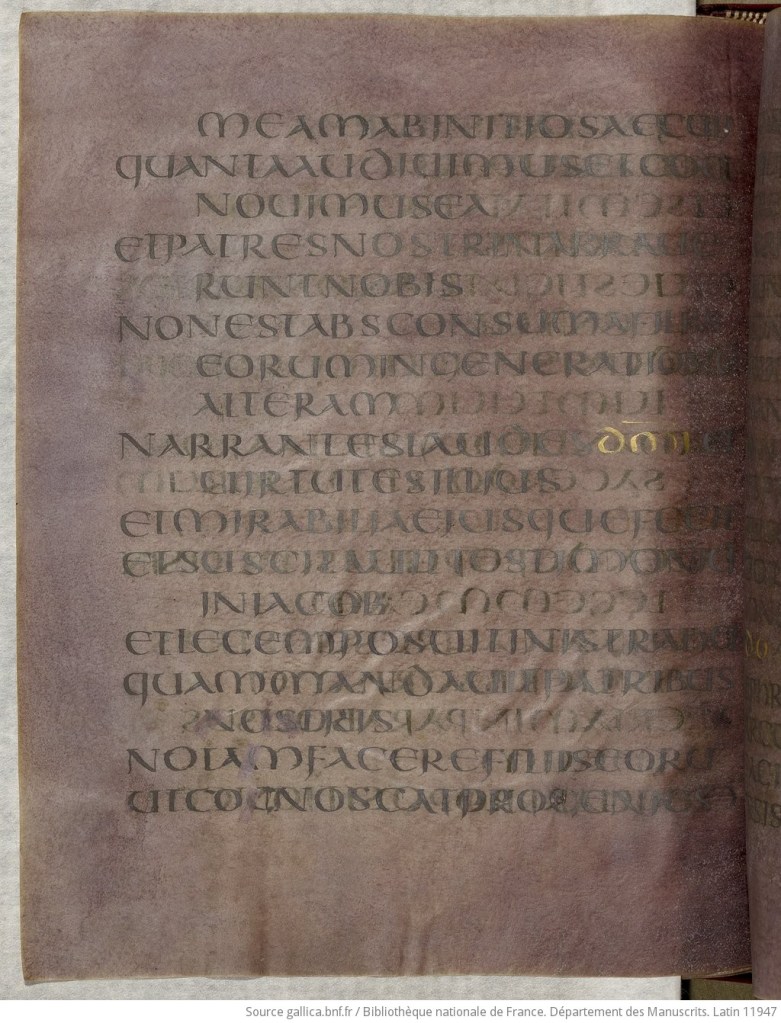 MEAM AB INITIO SAECULI
QUANTA AUDIUIMUS ET CO
NOUIMUS EA
ET PATRES NOSTRI NARRAUE
RUNT NOBIS
NON EST ABSCONSUM A FILIIS
EORUM IN GENERATIONE
ALTERAM
NARRANTES LAUDES DNI ET
UIRTUTES ILLIUS
ET MIRABILIA EIUS QUE FECIT
ET SUSCITAUIT TESTIMONIUM
IN IACOB
ET LEGEM POSUIT IN ISTRAHEL
QUAM MANDAUIT PATRIBUS
NOSTRIS
NOTAM FACERE FILIIS EORU
UT COGNOSCAT PROGENIES
Source gallica.bnf.fr / Bibliothèque nationale de France. Département des Manuscrits. Latin 11947